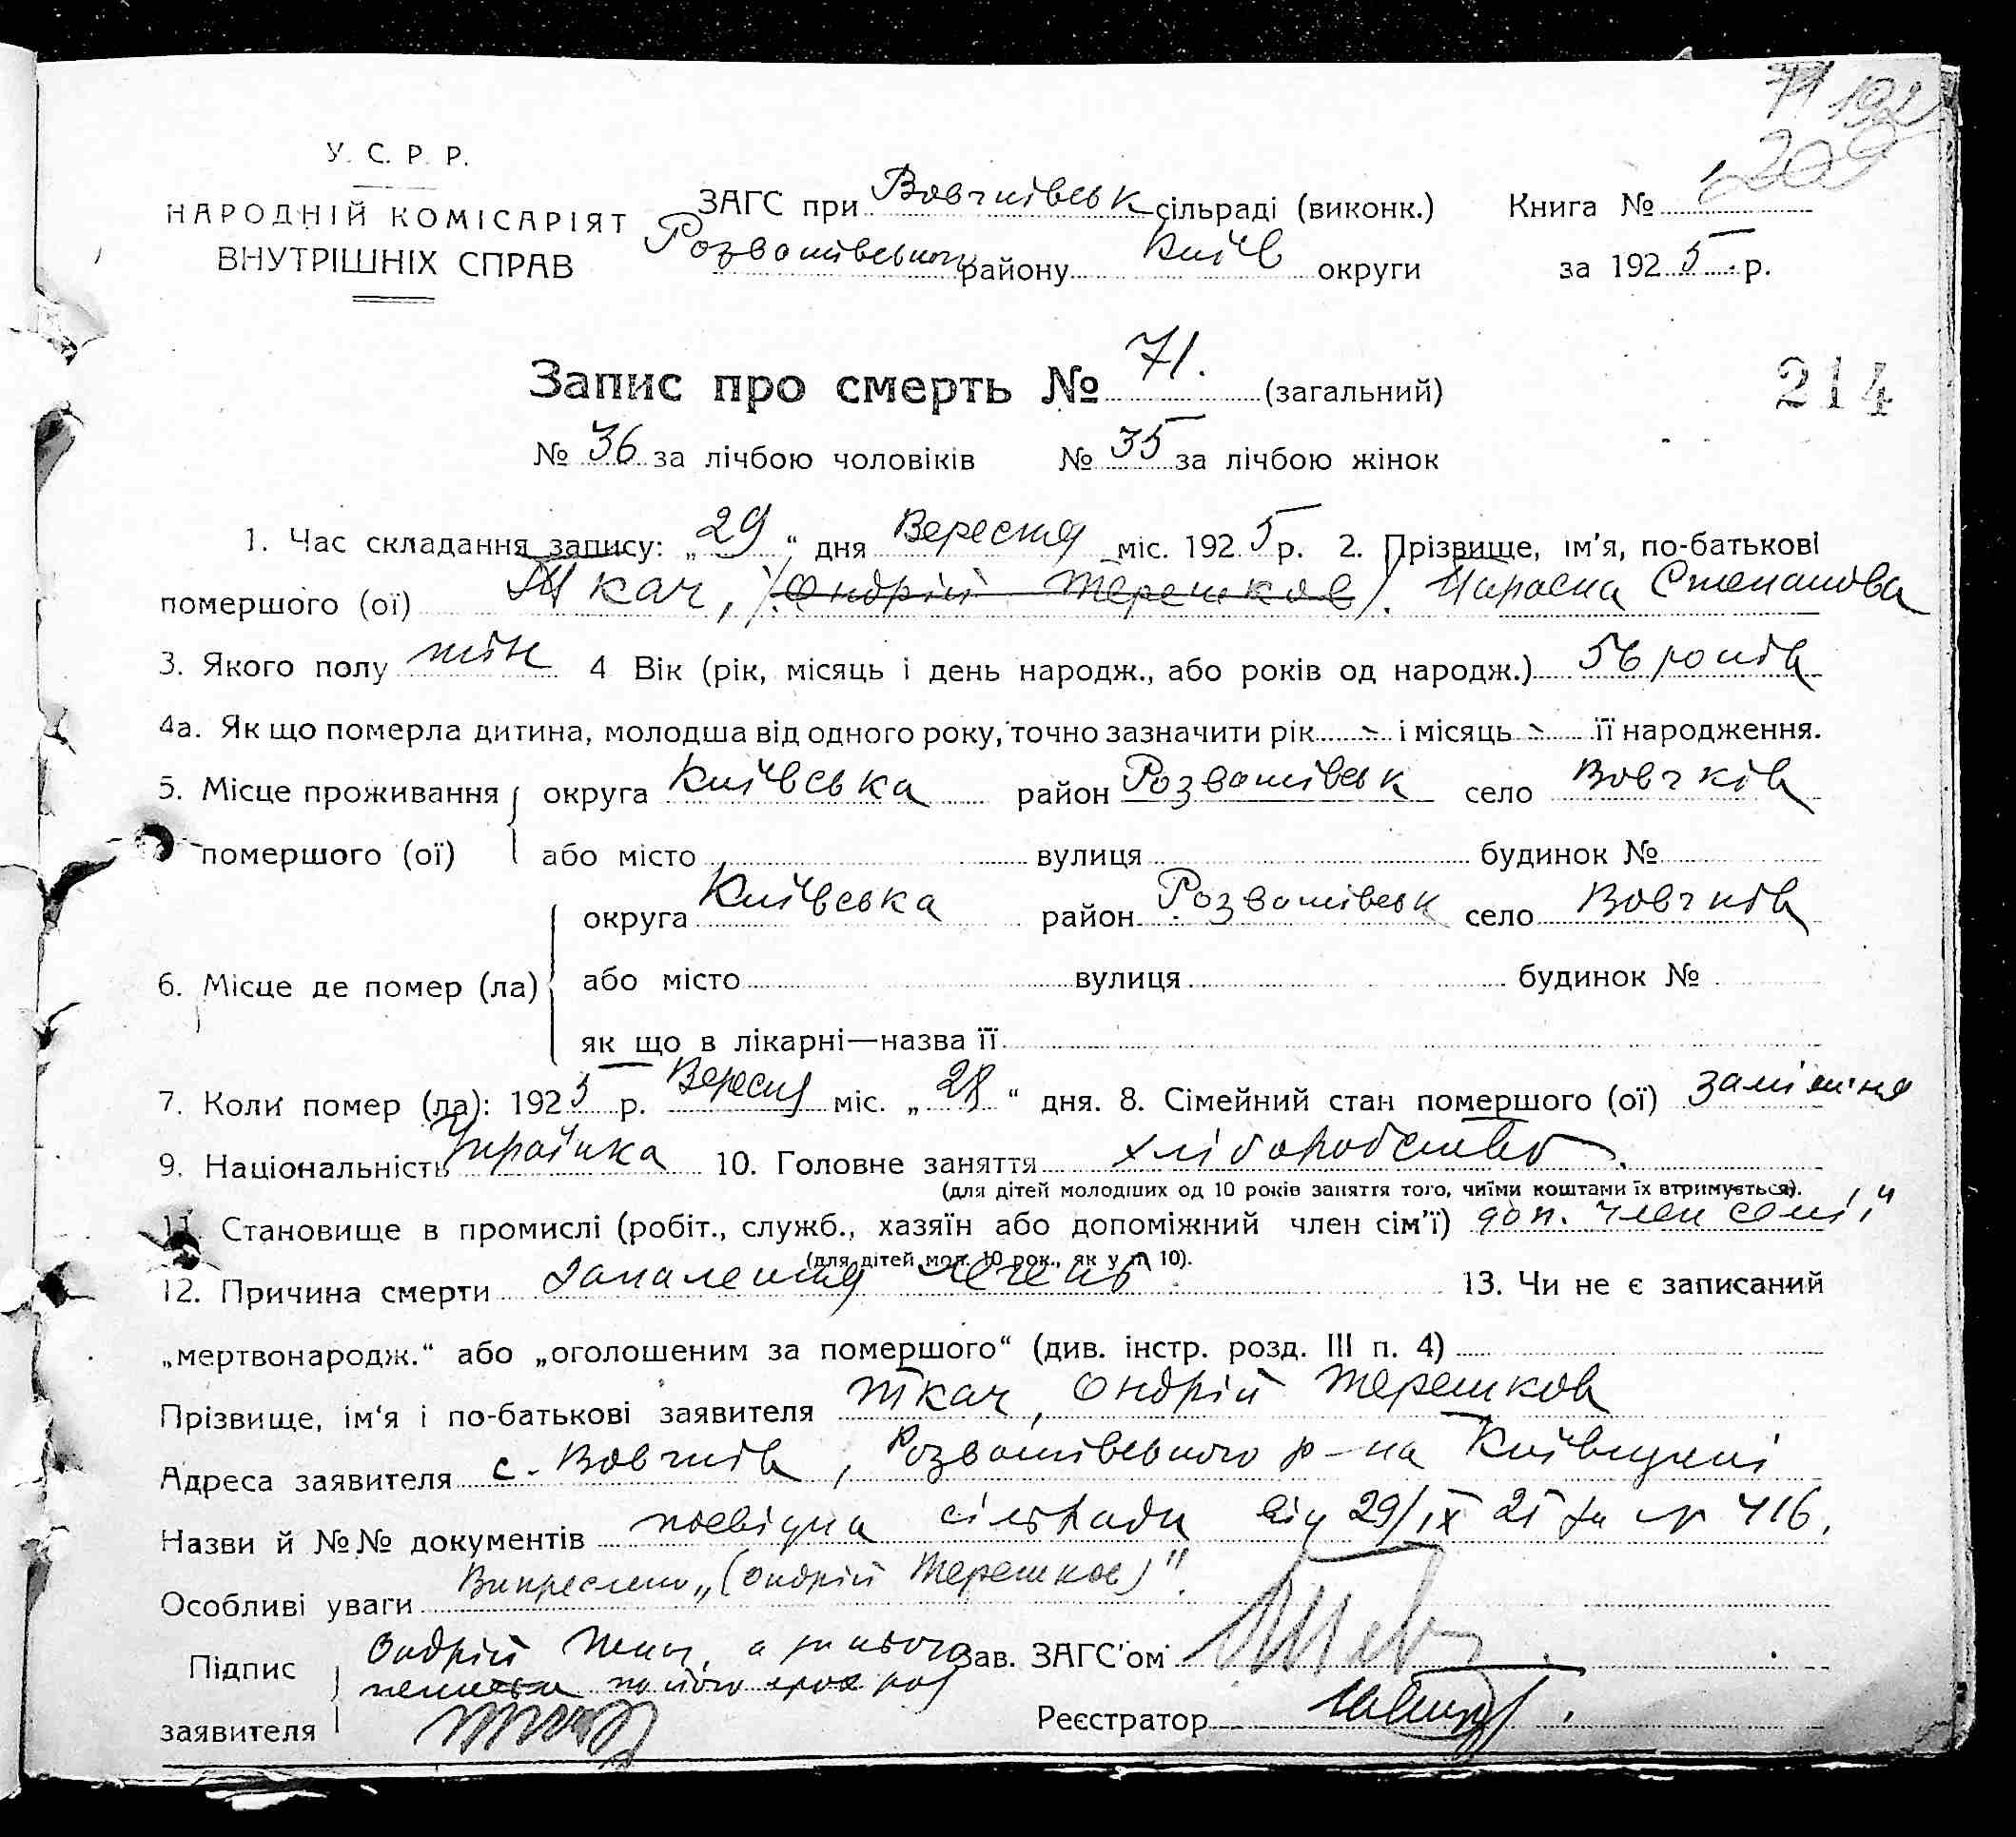 У. С. Р. Р.
НАРОДНІЙ КОМІСАРІЯТ
ВНУТРІШНІХ СПРАВ
ЗАГС при Вовчківськ сільраді (виконк.)
Розважівського району Київ округи
Книга №
за 1925 р.
209
214
Запис про смерть № 71. (загальний)
№ 36 за лічбою чоловіків № 35 за лічбою жінок
1. Час складання запису: „29“ дня Вересня міс. 1925 р. 2. Прізвище, ім'я, по-батькові
помершого (ої) Ткач, (Ондрій Терешков). Параска Степанова
3. Якого полу жін 4 Вік (рік, місяць і день народж., або років од народж.) 56 років
4а. Як що померла дитина, молодша від одного року, точно зазначити рік - і місяць - її народження.
5. Місце проживання округа Київська район Розважівськ село Вовчків
помершого (ої) або місто вулиця будинок №
округа Київська район Розважівськ село Вовчків
6. Місце де помер (ла) або місто вулиця будинок №
як що в лікарні—назва її
7. Коли помер (ла): 1925 р. Вересня міс. „28“ дня. 8. Сімейний стан помершого (ої) заміжня
9. Національність Українка 10. Головне заняття хліборобство.
(для дітей молодших од 10 років заняття того, чиїми коштами їх втримується).
11. Становище в промислі (робіт., служб., хазяїн або допоміжний член сім'ї) доп. член семії
(для дітей мол. 10 рок., як у п. 10).
12. Причина смерти Запалення печені 13. Чи не є записаний
„мертвонародж.“ або „оголошеним за помершого“ (див. інстр. розд. III п. 4)
Прізвище, ім'я і по-батькові заявителя Ткач, Ондрій Терешков
Адреса заявителя с. Вовчків, Розважівського р-на Київщині
Назви й №№ документів посвідка сільради від 29/IX 25 за № 416.
Особливі уваги Викреслено „(Ондрій Терешков)“.
Підпис Ондрій Ткач, а за нього Зав. ЗАГС'ом
заявителя Реєстратор